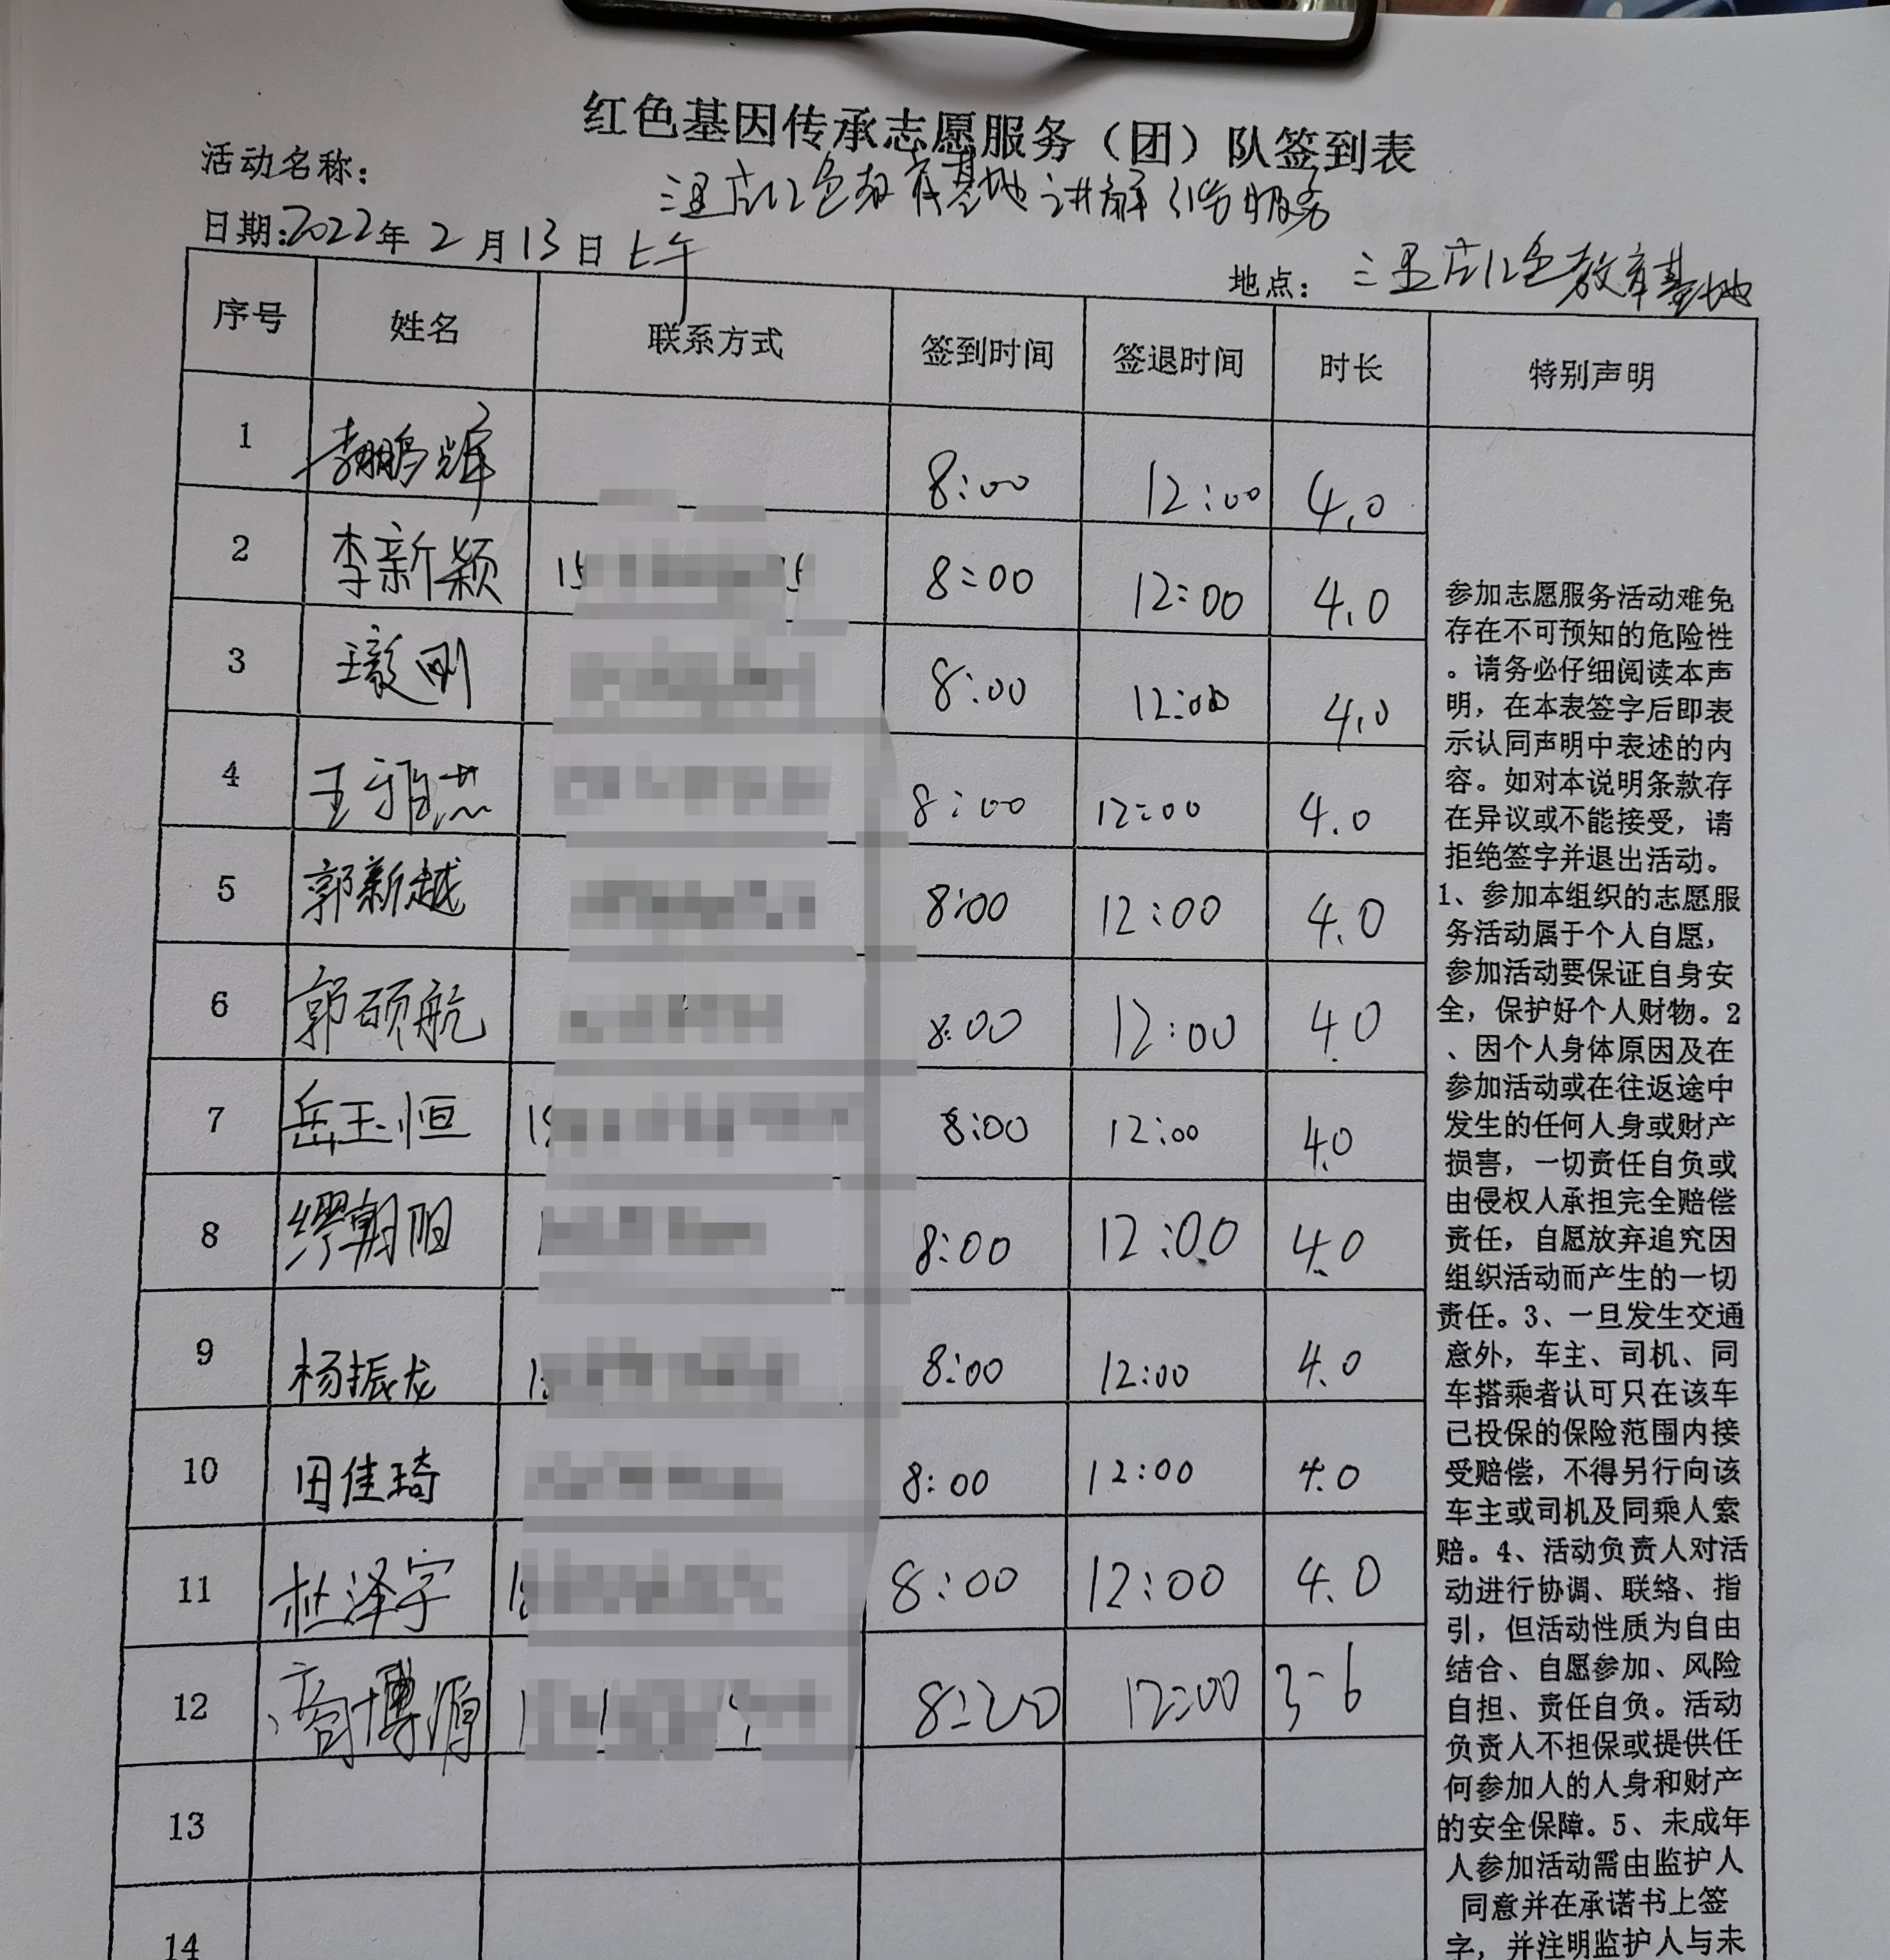 红色基因传承志愿服务（团）队签到表
活动名称：
三里庄红色教育基地讲解引导服务
日期:2022年2月13日上午
地点：三里庄红色教育基地
序号 姓名 联系方式 签到时间 签退时间 时长 特别声明
1 李鹏辉 8:00 12:00 4.0
2 李新颖 15 8:00 12:00 4.0
3 刚 8:00 12:00 4.0
4 王雅芯 8:00 12:00 4.0
5 郭新越 8:00 12:00 4.0
6 郭硕航 8:00 12:00 4.0
7 岳玉恒 8:00 12:00 4.0
8 缪朝阳 8:00 12:00 4.0
9 杨振龙 8:00 12:00 4.0
10 田佳琦 8:00 12:00 4.0
11 杜泽宇 8:00 12:00 4.0
12 商博源 8:20 12:00 3-6
13
14
参加志愿服务活动难免
存在不可预知的危险性
。请务必仔细阅读本声
明，在本表签字后即表
示认同声明中表述的内
容。如对本说明条款存
在异议或不能接受，请
拒绝签字并退出活动。
1、参加本组织的志愿服
务活动属于个人自愿，
参加活动要保证自身安
全，保护好个人财物。2
、因个人身体原因及在
参加活动或在往返途中
发生的任何人身或财产
损害，一切责任自负或
由侵权人承担完全赔偿
责任，自愿放弃追究因
组织活动而产生的一切
责任。3、一旦发生交通
意外，车主、司机、同
车搭乘者认可只在该车
已投保的保险范围内接
受赔偿，不得另行向该
车主或司机及同乘人索
赔。4、活动负责人对活
动进行协调、联络、指
引，但活动性质为自由
结合、自愿参加、风险
自担、责任自负。活动
负责人不担保或提供任
何参加人的人身和财产
的安全保障。5、未成年
人参加活动需由监护人
同意并在承诺书上签
字，并注明监护人与未